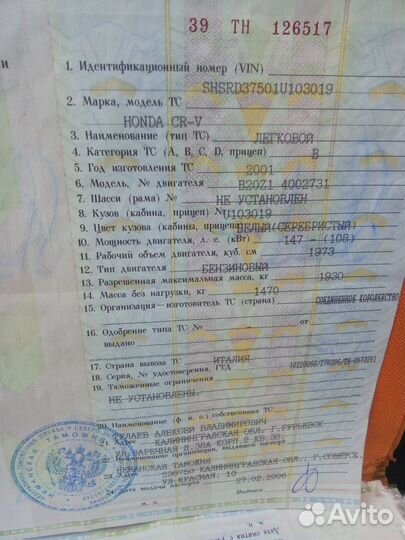 39 ТН 126517
1. Идентификационный номер (VIN)
SHSRD37501U103019
2. Марка, модель ТС
HONDA CR-V
3. Наименование (тип ТС) ЛЕГКОВОЙ
4. Категория ТС (A, B, C, D, прицеп) B
5. Год изготовления ТС 2001
6. Модель, № двигателя B20Z1 4002731
7. Шасси (рама) № НЕ УСТАНОВЛЕН
8. Кузов (кабина, прицеп) № U103019
9. Цвет кузова (кабины, прицепа) БЕЛЫЙ(СЕРЕБРИСТЫЙ)
10. Мощность двигателя, л. с. (кВт) 147 - (108)
11. Рабочий объем двигателя, куб. см 1973
12. Тип двигателя БЕНЗИНОВЫЙ
13. Разрешенная максимальная масса, кг 1930
14. Масса без нагрузки, кг 1470
15. Организация-изготовитель ТС (страна) СОЕДИНЕННОЕ КОРОЛЕВСТВО
16. Одобрение типа ТС № от
выдано
17. Страна вывоза ТС ИТАЛИЯ
18. Серия, № удостоверения, ГТД 10220060/270206/ТВ-0573261
19. Таможенные ограничения
НЕ УСТАНОВЛЕНЫ.
20. Наименование (ф. и. о.) собственника ТС
АЛЕКСЕЙ ВЛАДИМИРОВИЧ
КАЛИНИНГРАДСКАЯ ОБЛ. Г.ГУРЬЕВСК
УЛ.ЗАРЕЧНАЯ Д.38А КОРП.2 КВ.38.
22. Наименование организации, выдавшей паспорт
НЕМАНСКАЯ ТАМОЖНЯ
238750 КАЛИНИНГРАДСКАЯ ОБЛ., Г.СОВЕТСК,
УЛ.КРАСНАЯ, 10
24. Дата выдачи паспорта 27.02.2006
м. п. Подпись
Avito